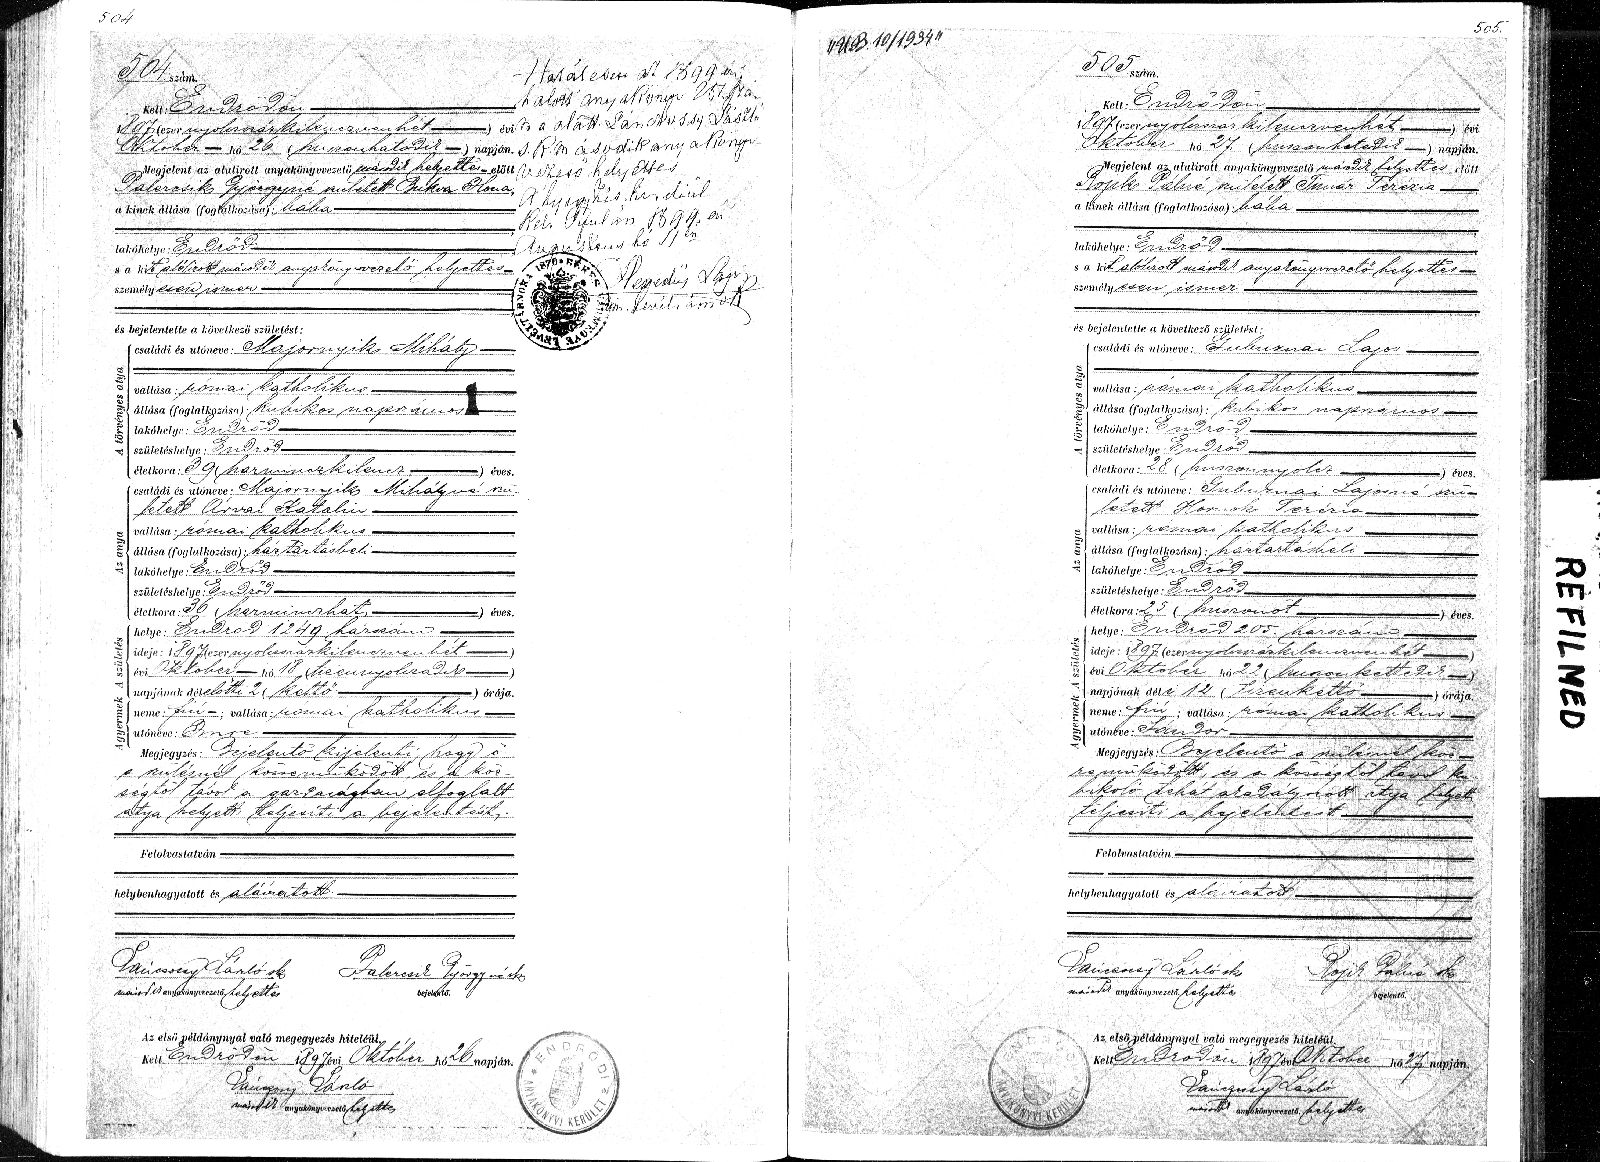 504
504 szám.
Kelt: Endrődön
1897 (ezernyolcszázkilenczvenhét) évi
Október hó 26 (huszonhatodik) napján.
Megjelent az alulirott anyakönyvvezető második helyettes előtt
Palercsik Györgyné született Bukva Ilona,
a kinek állása (foglalkozása): bába
lakóhelye: Endrőd
s a kit alólirott második anyakönyvvezető helyettes
személyesen ismer
és bejelentette a következő születést:
A törvényes atya
családi és utóneve: Majornyik Mihály
vallása: római katholikus
állása (foglalkozása): kubikos napszámos
lakóhelye: Endrőd
születéshelye: Endrőd
életkora: 39 (harminczkilencz) éves.
Az anya
családi és utóneve: Majornyik Mihályné szü-
letett Árvai Katalin
vallása: római katholikus
állása (foglalkozása): háztartásbeli
lakóhelye: Endrőd
születéshelye: Endrőd
életkora: 36 (harminczhat) éves.
A gyermek A születés
helye: Endrőd 1249 házszám
ideje: 1897 (ezernyolcszázkilenczvenhét)
évi Október hó 18 (tizennyolczadik)
napjának délelőtti 2 (kettő) órája.
neme: fiú; vallása: római katholikus
utóneve: Imre
Megjegyzés: Bejelentő kijelenti, hogy ő
a szülésnél közreműködött és a köz-
ségtől távol a gazdaságban elfoglalt
atya helyett teljesíti a bejelentést.
Felolvastatván
helybenhagyatott és aláiratott.
Váncsovy László sk
második anyakönyvvezető helyettes
Palercsik Györgyné sk
bejelentő.
Az első példánynyal való megegyezés hiteléül.
Kelt Endrődön 1897 évi Október hó 26 napján.
Váncsovy László
második anyakönyvvezető helyettes
ENDRŐDI ANYAKÖNYVI KERÜLET
1899
halotti anyakönyv
alatt László
s. k. második anyakönyv-
vezető helyettes
A hitelül
1899
Augusztus hó 11 én
1
505.
"UB. 10/1934"
505 szám.
Kelt: Endrődön
1897 (ezernyolcszázkilenczvenhét) évi
Október hó 27 (huszonhetedik) napján.
Megjelent az alulirott anyakönyvvezető második helyettes előtt
Rojik Pálné született Tímár Terézia
a kinek állása (foglalkozása): bába
lakóhelye: Endrőd
s a kit alólirott második anyakönyvvezető helyettes
személyesen ismer
és bejelentette a következő születést:
A törvényes atya
családi és utóneve: Gubucznai Lajos
vallása: római katholikus
állása (foglalkozása): kubikos napszámos
lakóhelye: Endrőd
születéshelye: Endrőd
életkora: 28 (huszonnyolcz) éves.
Az anya
családi és utóneve: Gubucznai Lajosné szü-
letett Homok Terézia
vallása: római katholikus
állása (foglalkozása): háztartásbeli
lakóhelye: Endrőd
születéshelye: Endrőd
életkora: 25 (huszonöt) éves.
A gyermek A születés
helye: Endrőd 205 házszám
ideje: 1897 (ezernyolcszázkilenczvenhét)
évi Október hó 22 (huszonkettedik)
napjának déli 12 (tizenkettő) órája.
neme: fiú; vallása: római katholikus
utóneve: Sándor
Megjegyzés: Bejelentő a szülésnél köz-
reműködött, és a községtől távol ku-
bikoló tehát akadályozott atya helyett
teljesíti a bejelentést
Felolvastatván
helybenhagyatott és aláiratott
Váncsovy László sk
második anyakönyvvezető helyettes
Rojik Pálné sk
bejelentő.
Az első példánynyal való megegyezés hiteléül.
Kelt Endrődön 1897 évi Október hó 27 napján.
Váncsovy László
második anyakönyvvezető helyettes
ANYAKÖNYVI KERÜLET
REFILMED